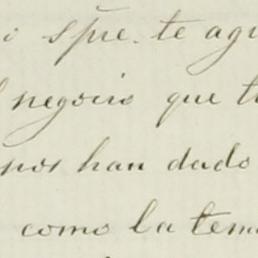 o spre. te agu
l negocio que t
nos han dado
como la tem